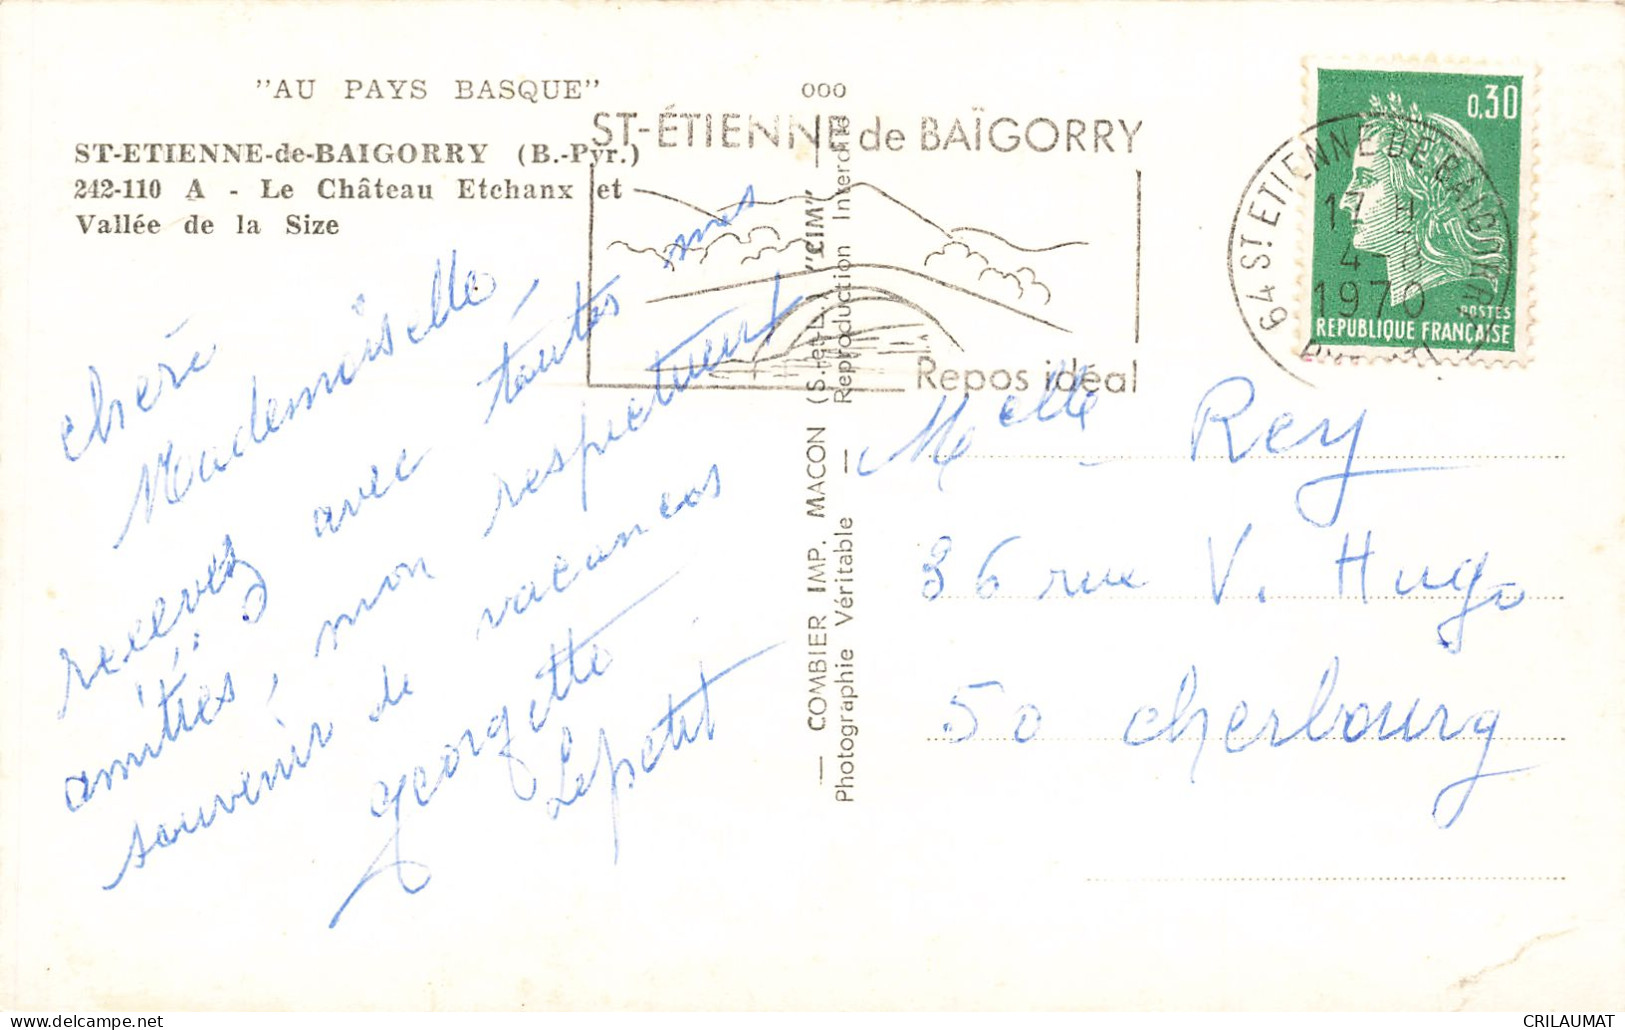 "AU PAYS BASQUE"
ST-ETIENNE-de-BAIGORRY (B.-Pyr.)
242-110 A - Le Château Etchanx et
Vallée de la Size
chère
Mademoiselle,
recevez avec toutes mes
amitiés, mon respectueux
souvenir de vacances
Georgette
Lepetit
ooo
ST-ÉTIENNE de BAÏGORRY
Repos idéal
— COMBIER IMP. MACON (S.-et-L.) "CIM"
Photographie Véritable — Reproduction Interdite
0,30
POSTES
RÉPUBLIQUE FRANÇAISE
64 ST ETIENNE DE BAIGORRY
17 H
4-8
1970
Melle Rey
36 rue V. Hugo
50 Cherbourg
CPA CPSM www.delcampe.net
CRILAUMAT